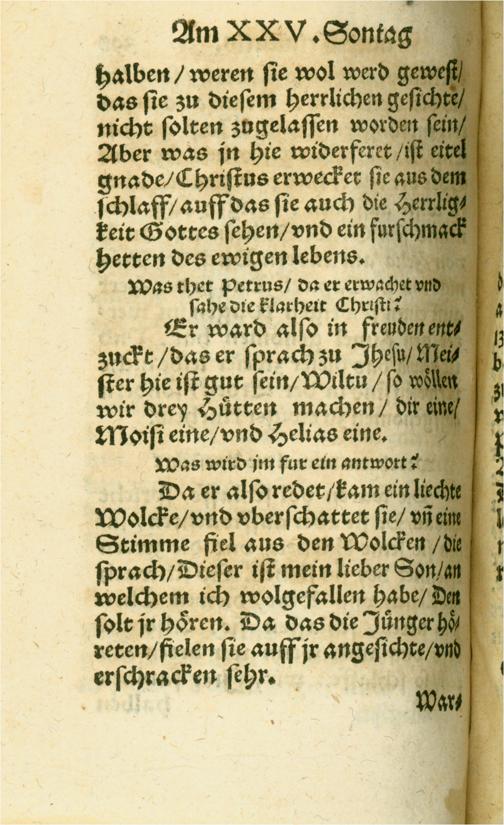 Am XXV. Sontag
halben / weren sie wol werd gewest/
das sie zu diesem herrlichen gesichte/
nicht solten zugelassen worden sein/
Aber was jn hie widerferet /ist eitel
gnade/Christus erwecket sie aus dem
schlaff/auff das sie auch die Herrlig⸗
keit Gottes sehen/vnd ein furschmack
hetten des ewigen lebens.
Was thet Petrus/ da er erwachet vnd
sahe die klarheit Christi?
Er ward also in freuden ent⸗
zuckt/das er sprach zu Jhesu/Mei⸗
ster hie ist gut sein/Wiltu / so wöllen
wir drey Hütten machen/ dir eine/
Moisi eine/vnd Helias eine.
Was wird jm fur ein antwort?
Da er also redet/kam ein liechte
Wolcke/vnd vberschattet sie/ vn̄ eine
Stimme fiel aus den Wolcken /die
sprach/Dieser ist mein lieber Son/an
welchem ich wolgefallen habe/Den
solt jr hören. Da das die Jünger hö⸗
reten/fielen sie auff jr angesichte/vnd
erschracken sehr.
War⸗